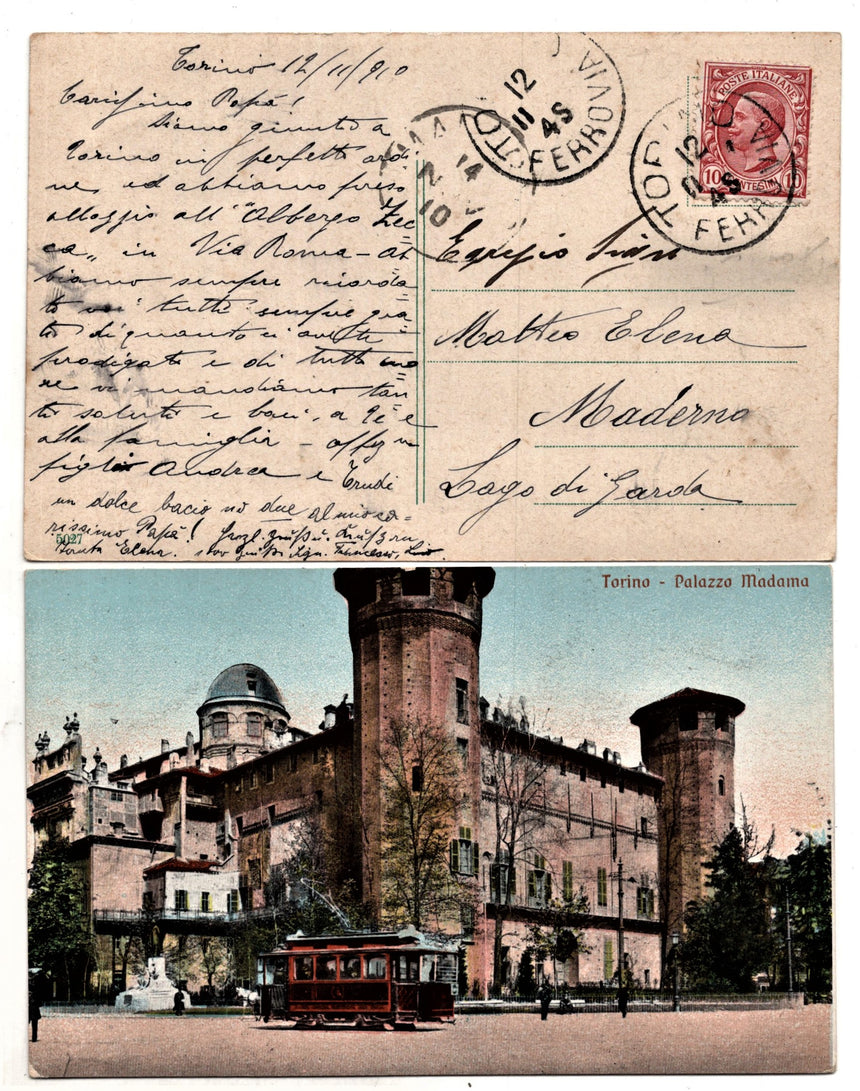 Torino 12/11/910
Carissimo Papà!
Siamo giunti a
Torino in perfetto ordi
ne ed abbiamo preso
alloggio all' "Albergo Zec
ca„ in Via Roma - ab
biamo sempre ricorda
to voi tutti sempre gra
ti di quanto ci aveste
prodigati e di tutto
re vi mandiamo tan
ti saluti e baci, a Te e
alla famiglia - affez mi
figli Andrea e Trudi
un dolce bacio no due al mio ca=
rissimo Papà!
Elena.
5027
POSTE ITALIANE
10 CENTESIMI 10
TORINO
12
11
4S
FERROVIA
12
11
4S
FERROVIA
14
10
Egregio Sign
Matteo Elena
Maderno
Lago di Garda
Torino - Palazzo Madama